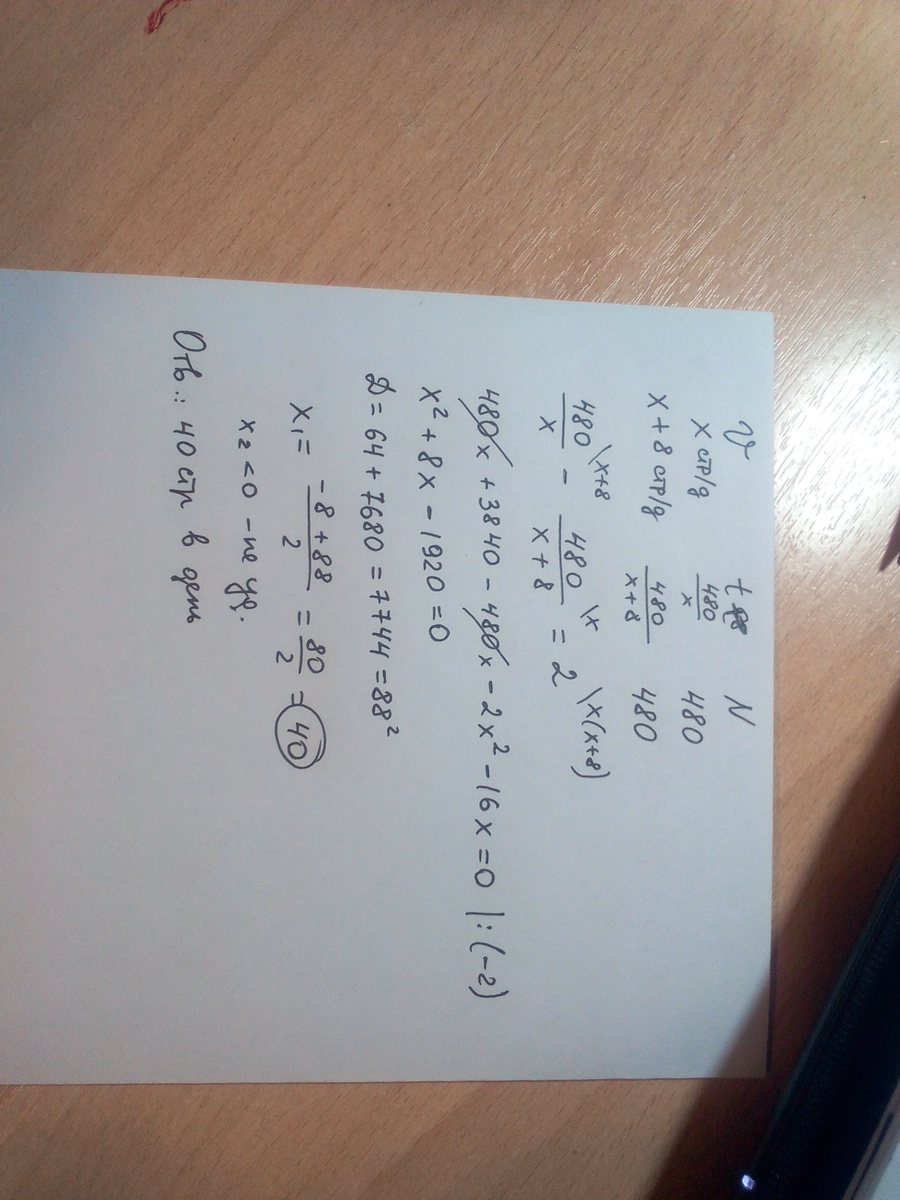 V t N
x стр/д 480/x 480
x + 8 стр/д 480/x+8 480
480/x \x+8 - 480/x + 8 \x = 2 \x(x+8)
480x + 3840 - 480x - 2x² - 16x = 0 |: (-2)
x² + 8x - 1920 = 0
D = 64 + 7680 = 7744 = 88²
x₁ = -8 + 88/2 = 80/2 = 40
x₂ < 0 - не уд.
Отв.: 40 стр в день